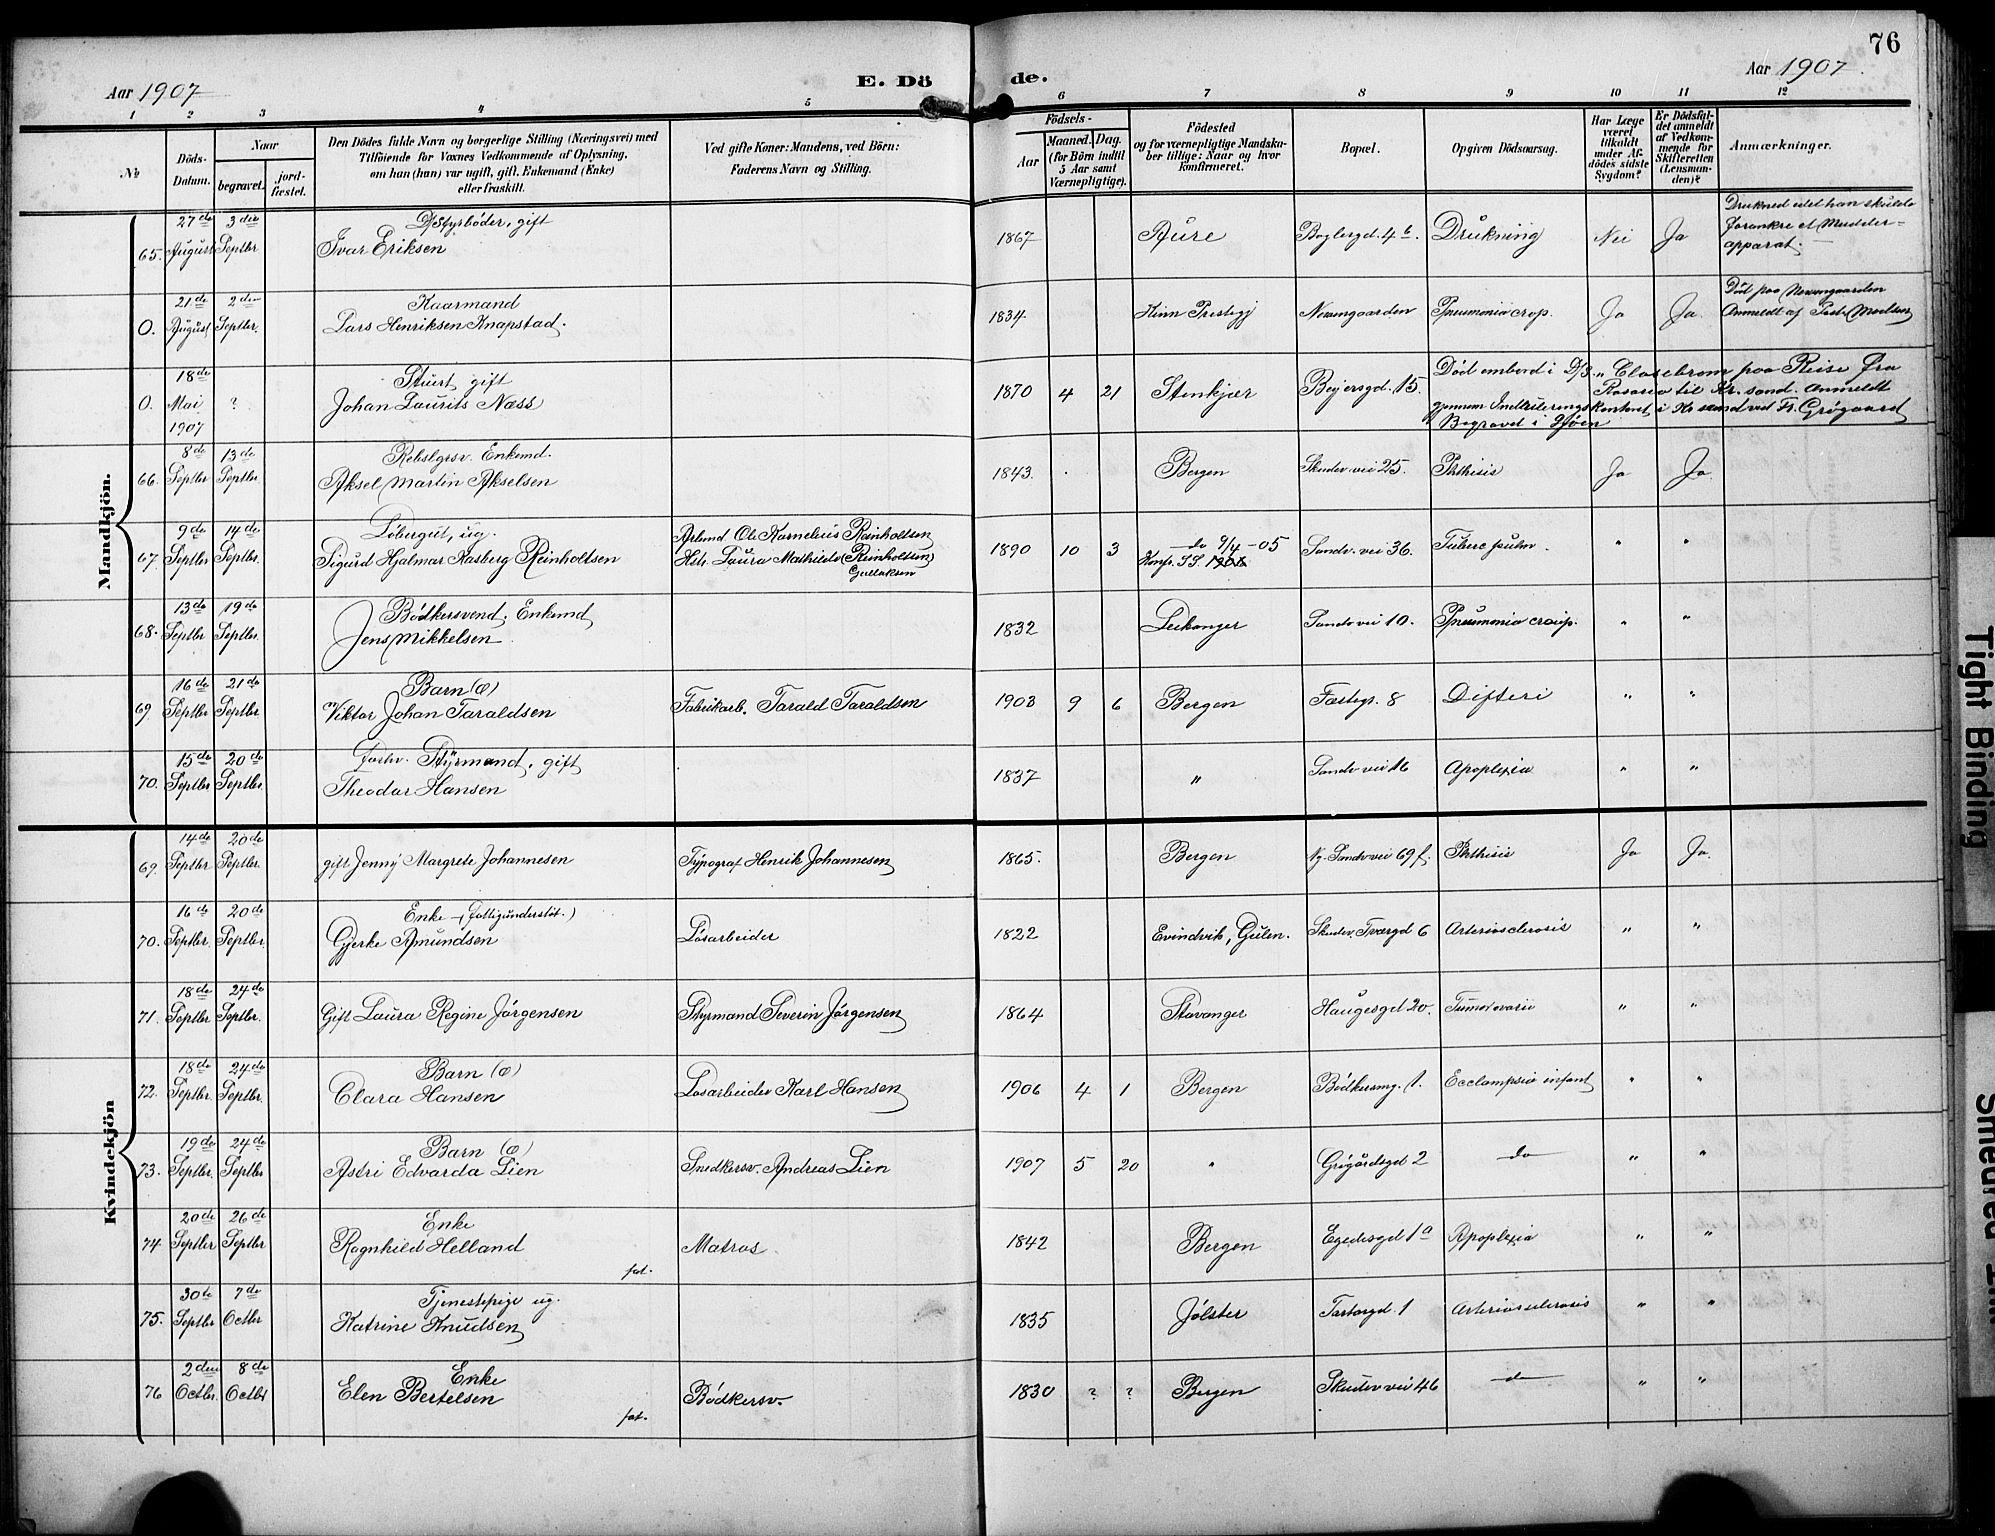 76
Aar 1907
E. Dö
de.
Aar 1907
1 2 3 4 5 6 7 8 9 10 11 12
No
Döds-Datum.
Naar
begravet.
jord-fæstet.
Den Dödes fulde Navn og borgerlige Stilling (Næringsvei) med
Tilföiende for Voxnes Vedkommende af Oplysning,
om han (hun) var ugift, gift, Enkemand (Enke)
eller fraskilt.
Ved gifte Koner: Mandens, ved Börn:
Faderens Navn og Stilling.
Födsels-
Aar
Maaned. Dag.
(for Börn indtil
5 Aar samt
Værnepligtige).
Födested
og for værnepligtige Mandska-
ber tillige: Naar og hvor
konfirmeret.
Bopæl.
Opgiven Dödsaarsag.
Har Læge
været
tilkaldt
under Af-
dödes sidste
Sygdom?
Er Dödsfal-
det anmeldt
af Vedkom-
mende for
Skifteretten
(Lensman-
den)?
Anmærkninger.
Mandkjön.
65. 27de August 3die Septbr D/S fyrböder, gift
Ivar Eriksen 1867 Aure Boglergd. 4 b. Drukning Nei Ja Druknede idet han skulde
forankre et Mudder-
apparat.
0. 21de August 2den Septbr. Kaarmand
Lars Henriksen Knapstad. 1834 Kinn Prestegj Nevengaarden Pneumonia crop. Ja Ja Död paa Nevengaarden
Anmeldt af Madsen
0. 18de Mai 1907 ? Stuert, gift
Johan Laurits Næss 1870 4 21 Stenkjær Beyersgd. 15. Död ombord i D/S. " paa Reise fra
Rosario til Kr.sand. Anmeldt
gjennem kontoret i Kr sand ved Fr. Grögaard
Begravet i Sjöen
66. 8de Septbr 13de Septbr. Rebslgrsv. Enkemd.
Aksel Martin Akselsen 1843. Bergen Skudev. vei 25. Phthisis Ja Ja
67 9de Septbr 14de Septbr. Löbergut, ug.
Sigurd Hjalmar Aasberg Reinholtsen Arbmd Ole Kornelius Reinholtsen
Hstr. Laura Mathilde (Reinholtsen)
Gullaksen 1890 10 3 do 9/4 - 05
Konf. Sandv. vei 36. Tuberc pulm. " "
68. 13de Septbr 19de Septbr. Bödkersvend, Enkemd
Jens Mikkelsen 1832 Leikanger Sandv vei 10. Pneumonia croup. " "
69 16de Septbr 21de Septbr Barn (æ)
Viktor Johan Taraldsen Fabrikarb. Tarald Taraldsen 1903 9 6 Bergen Fæstegr. 8 Difteri " "
70. 15de Septbr 20de Septbr. Forhv. Styrmand, gift
Theodor Hansen 1837 " Sandv vei 16 Apoplexia " "
Kvindekjön
69. 14de Septbr 20de Septbr. gift Jenny Margrete Johannesen Typograf Henrik Johannesen 1865. Bergen Ny-Sandv vei 69 f. Phthisis Ja Ja.
70. 16de Septbr. 20de Septbr. Enke (fattigunderstöt.)
Gjerke Amundsen Lösarbeider 1822 Evindvik, Gulen. Skudev. Tværgd 6 Arteriosclerosis " "
71. 18de Septbr 24de Septbr. Gift Laura Regine Jörgensen Styrmand Severin Jörgensen 1864 Stavanger Haugesgd 20. Tumor ovarii " "
72. 18de Septbr. 24de Septbr. Barn (æ)
Clara Hansen Lösarbeider Karl Hansen 1906 4 1 Bergen Bödkersmg. 1. Ecclampsia infant " "
73. 19de Septbr. 24de Septbr Barn (æ)
Astri Edvarda Lien Snedkersv. Andreas Lien 1907 5 20 " Grögårdsgd 2 do " "
74 20de Septbr 26de Septbr Enke
Ragnhild Helland
fat. Matros 1842 Bergen Egedesgd 1 a Apoplexia " "
75. 30te Septbr 7de Octbr Tjenestepige ug.
Katrine Knudsen 1835 Jölster Tartargd. 1 Arteriosclerosis " "
76 2den Octbr. 8de Octbr Enke
Elen Bertelsen
fat. Bödkersv. 1830 ? ? Bergen Skudev vei 46 do " "
Tight Binding